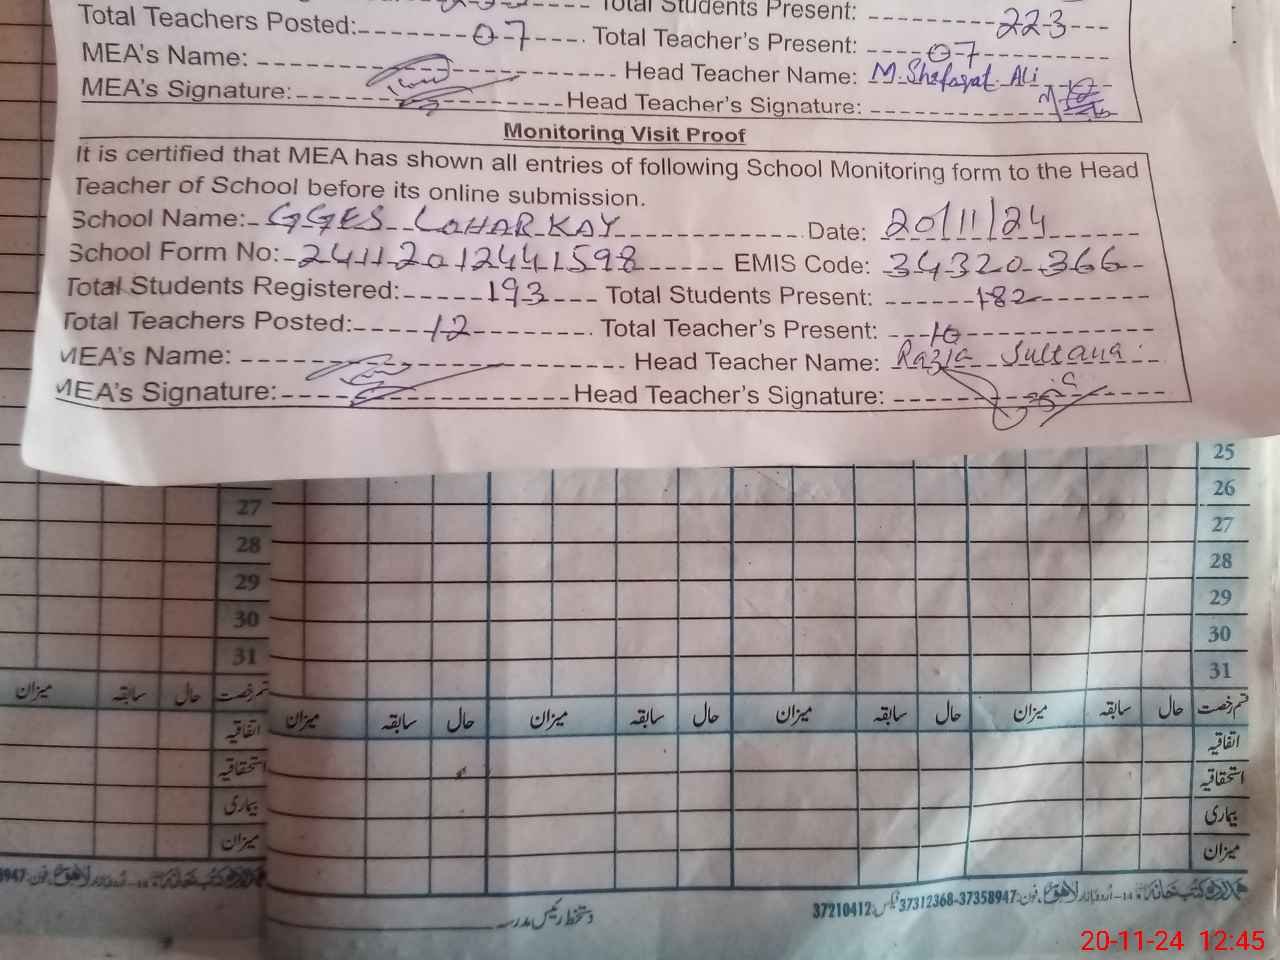 Total Students Present: 223
Total Teachers Posted: 07 Total Teacher's Present: 07
MEA's Name: Head Teacher Name: M. Shafaqat Ali
MEA's Signature: Head Teacher's Signature:
Monitoring Visit Proof
It is certified that MEA has shown all entries of following School Monitoring form to the Head
Teacher of School before its online submission.
School Name: GGES LOHAR KAY Date: 20/11/24
School Form No: 24112012441598 EMIS Code: 34320366
Total Students Registered: 193 Total Students Present: 182
Total Teachers Posted: 12 Total Teacher's Present: 10
MEA's Name: Head Teacher Name: Razia Sultana
MEA's Signature: Head Teacher's Signature:
25
26
27
28
29
30
31
قسم رخصت حال سابقہ میزان حال سابقہ میزان حال سابقہ میزان حال سابقہ میزان
اتفاقیہ
استحقاقیہ
بیماری
میزان
27
28
29
30
31
قسم رخصت حال سابقہ میزان
اتفاقیہ
استحقاقیہ
بیماری
میزان
ہمدرد کتب خانہ 14-اردو بازار لاہور۔ فون: 37312368-37358947 فیکس: 37210412
دستخط رئیس مدرسہ
20-11-24 12:45